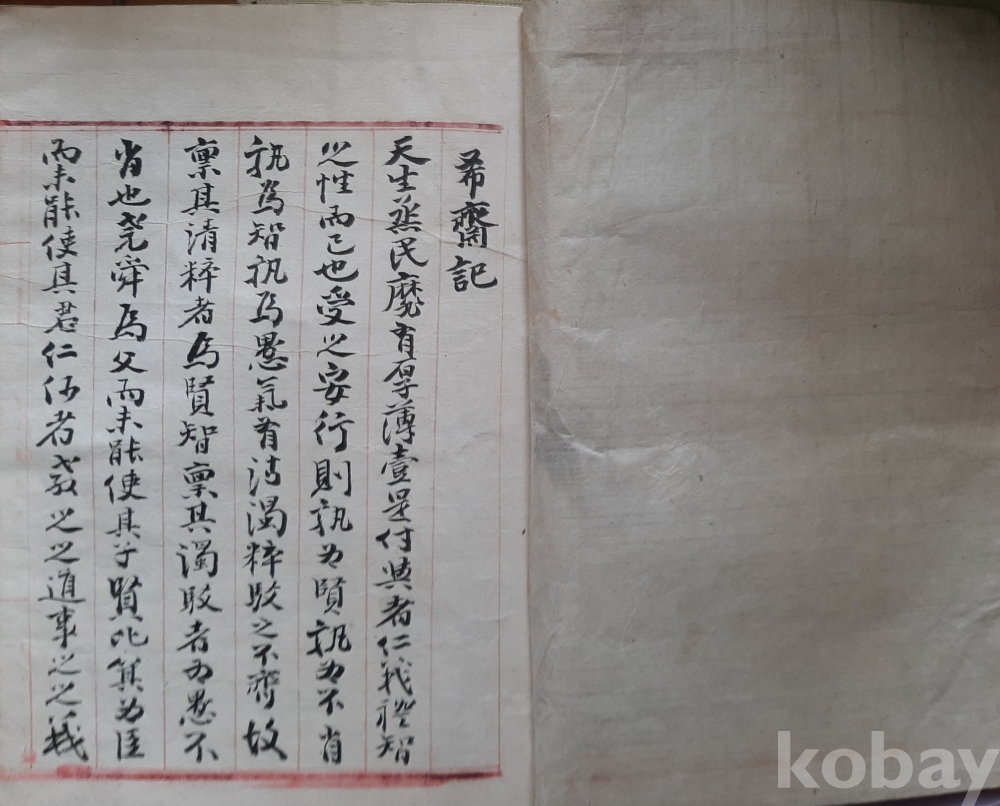 希齋記
天生蒸民靡有厚薄壹是付與者仁義禮智
之性而已也受之安行則孰为賢孰为不肖
孰爲智孰爲愚氣有清濁粹駁之不齊故
禀其清粹者爲賢智禀其濁駁者为愚不
肖也堯舜爲父而未能使其子賢比箕为臣
而未能使其君仁何者教之之道事之之義
kobay